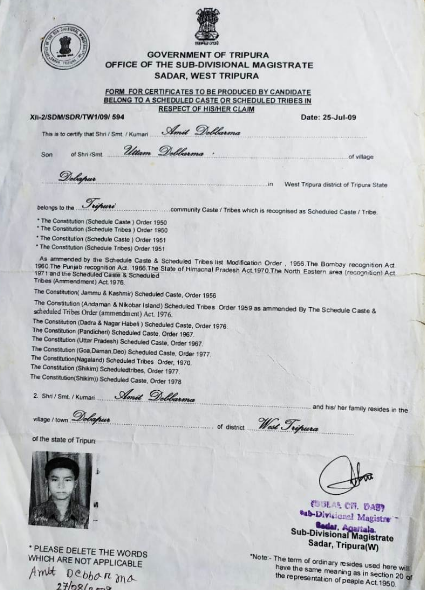 GOVERNMENT OF TRIPURA
OFFICE OF THE SUB-DIVISIONAL MAGISTRATE
SADAR, WEST TRIPURA
FORM FOR CERTIFICATES TO BE PRODUCED BY CANDIDATE
BELONG TO A SCHEDULED CASTE OR SCHEDULED TRIBES IN
RESPECT OF HIS/HER CLAIM
XII-2/SDM/SDR/TW1/09/ 594 Date: 25-Jul-09
This is to certify that Shri / Smt. / Kumari Amit Debbarma
Son of Shri /Smt. Uttam Debbarma of village
Debapur in West Tripura district of Tripura State
belongs to the Tripuri community Caste / Tribes which is recognised as Scheduled Caste / Tribe.
* The Constitution (Schedule Caste ) Order 1950
* The Constitution (Schedule Tribes ) Order 1950
* The Constitution (Schedule Caste ) Order 1951
* The Constitution (Schedule Tribes) Order 1951
As ammended by the Schedule Caste & Scheduled Tribes list Modification Order , 1956.The Bombay recognition Act.
1960.The Punjab recognition Act. 1966.The State of Himachal Pradesh Act.1970.The North Eastern area (recognition) Act.
1971 and the Scheduled Caste & Scheduled
Tribes (Ammendment) Act.1976.
The Constitution( Jammu & Kashmir) Scheduled Caste, Order 1956
The Constitution (Andaman & Nikobar Island) Scheduled Tribes Order 1959 as ammended By The Schedule Caste &
scheduled Tribes Order (ammendment) Act. 1976.
The Constitution (Dadra & Nagar Habeli ) Scheduled Caste, Order 1976.
The Constitution (Pandicheri) Scheduled Caste, Order 1967.
The Constitution (Uttar Pradesh) Scheduled Caste, Order 1967.
The Constitution (Goa,Daman,Deo) Scheduled Caste, Order 1977.
The Constitution(Nagaland) Scheduled Tribes Order, 1970.
The Constitution (Shikim) Scheduledtribes, Order 1977.
The Constitution(Shikimi) Scheduled Caste, Order 1978
2. Shri / Smt. / Kumari Amit Debbarma and his/ her family resides in the
village / town Debapur of district West Tripura
of the state of Tripuri
Sub-Divisional Magistrate
Sadar, Agartala.
Sub-Divisional Magistrate
Sadar, Tripura(W)
* PLEASE DELETE THE WORDS
WHICH ARE NOT APPLICABLE
*Note - The term of ordinary resides used here will
have the same meaning as in section 20 of
the representation of people Act.1950.
Amit Debbarma